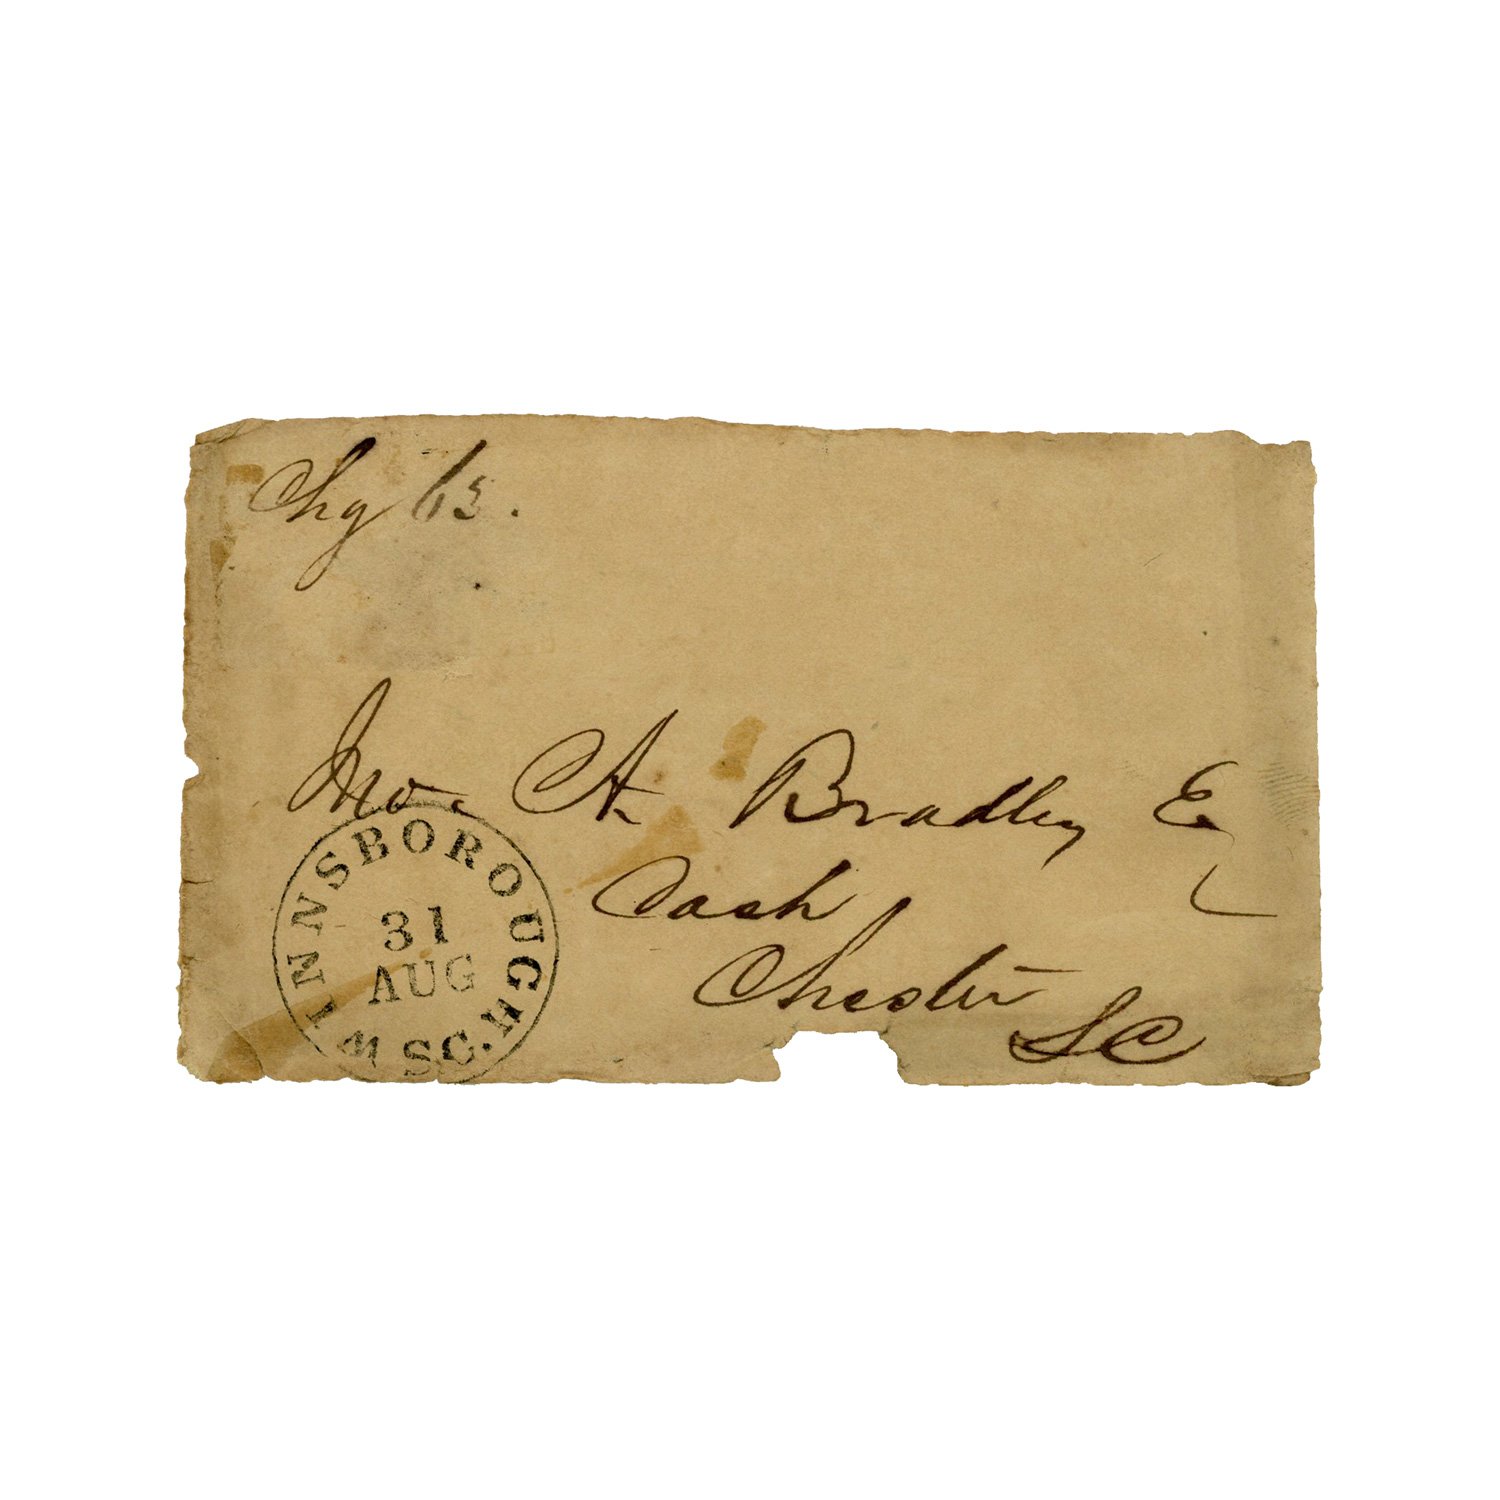 Chg 65.
Jno. A. Bradley E
Cash
Chester
SC
WINNSBOROUGH. SC.
31
AUG